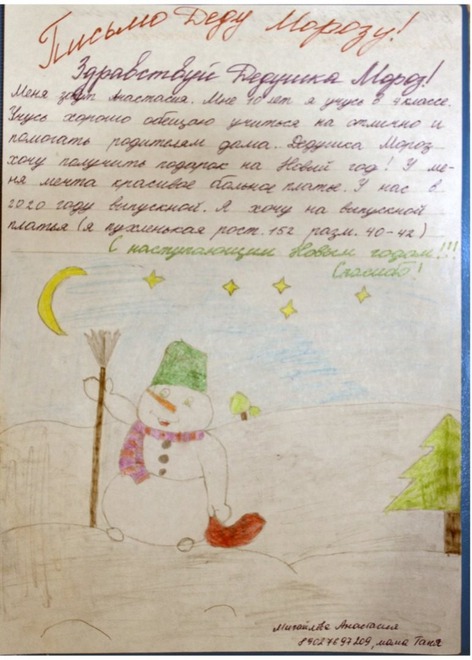 Письмо Деду Морозу!
Здравствуй Дедушка Мороз!
Меня зовут Анастасия. Мне 10 лет я учусь в 4 классе.
Учусь хорошо обещаю учиться на отлично и
помогать родителям дома. Дедушка Мороз
хочу получить подарок на Новый год! У ме-
ня мечта красивое бальное платье. У нас в
2020 году выпускной. Я хочу на выпускной
платья (я пухленькая рост. 152 разм. 40-42)
С наступающим Новым годом!!!
Спасибо!
Михайлова Анастасия
89027697209, мама Таня